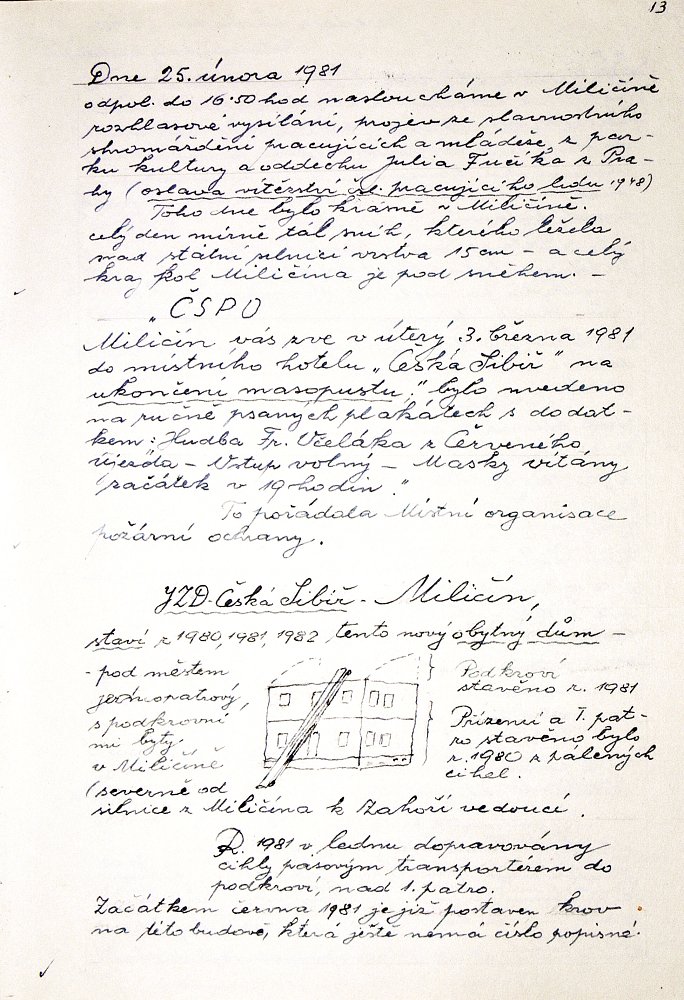 13
Dne 25. února 1981
odpol. do 16.50 hod nasloucháme v Miličíně
rozhlasové vysílání, projev ze slavnostního
shromáždění pracujících a mládeže, z par-
ku kultury a oddechu Julia Fučíka z Pra-
hy (oslava vítězství čsl. pracujícího lidu 1948)
Toho dne bylo krásně v Miličíně.
celý den mírně tál sníh, kterého ležela
nad státní silnicí vrstva 15 cm - a celý
kraj kol Miličína je pod sněhem. -
„ČSPO
Miličín vás zve v úterý 3. března 1981
do místního hotelu „Česká Sibiř" na
ukončení masopustu," bylo uvedeno
na ručně psaných plakátech s dodat-
kem: Hudba Fr. Včeláka z Červeného
Újezda - Vstup volný - Masky vítány
(začátek v 19 hodin."
To pořádala Místní organisace
požární ochrany.
JZD-Česká Sibiř - Miličín,
staví r 1980, 1981, 1982, tento nový obytný dům -
- pod městem
jednopatrový,
s podkrovní
mi byty.
v Miličíně
(severně od
silnice z Miličína k Zahoří vedoucí.
Podkroví
stavěno r. 1981
Přízemí a I. pat-
ro stavěno bylo
r. 1980 z pálených
cihel.
R. 1981 v lednu dopravovány
cihly pásovým transportérem do
podkroví, nad 1. patro.
Začátkem června 1981 je již postaven krov
na této budově, která ještě nemá číslo popisné.